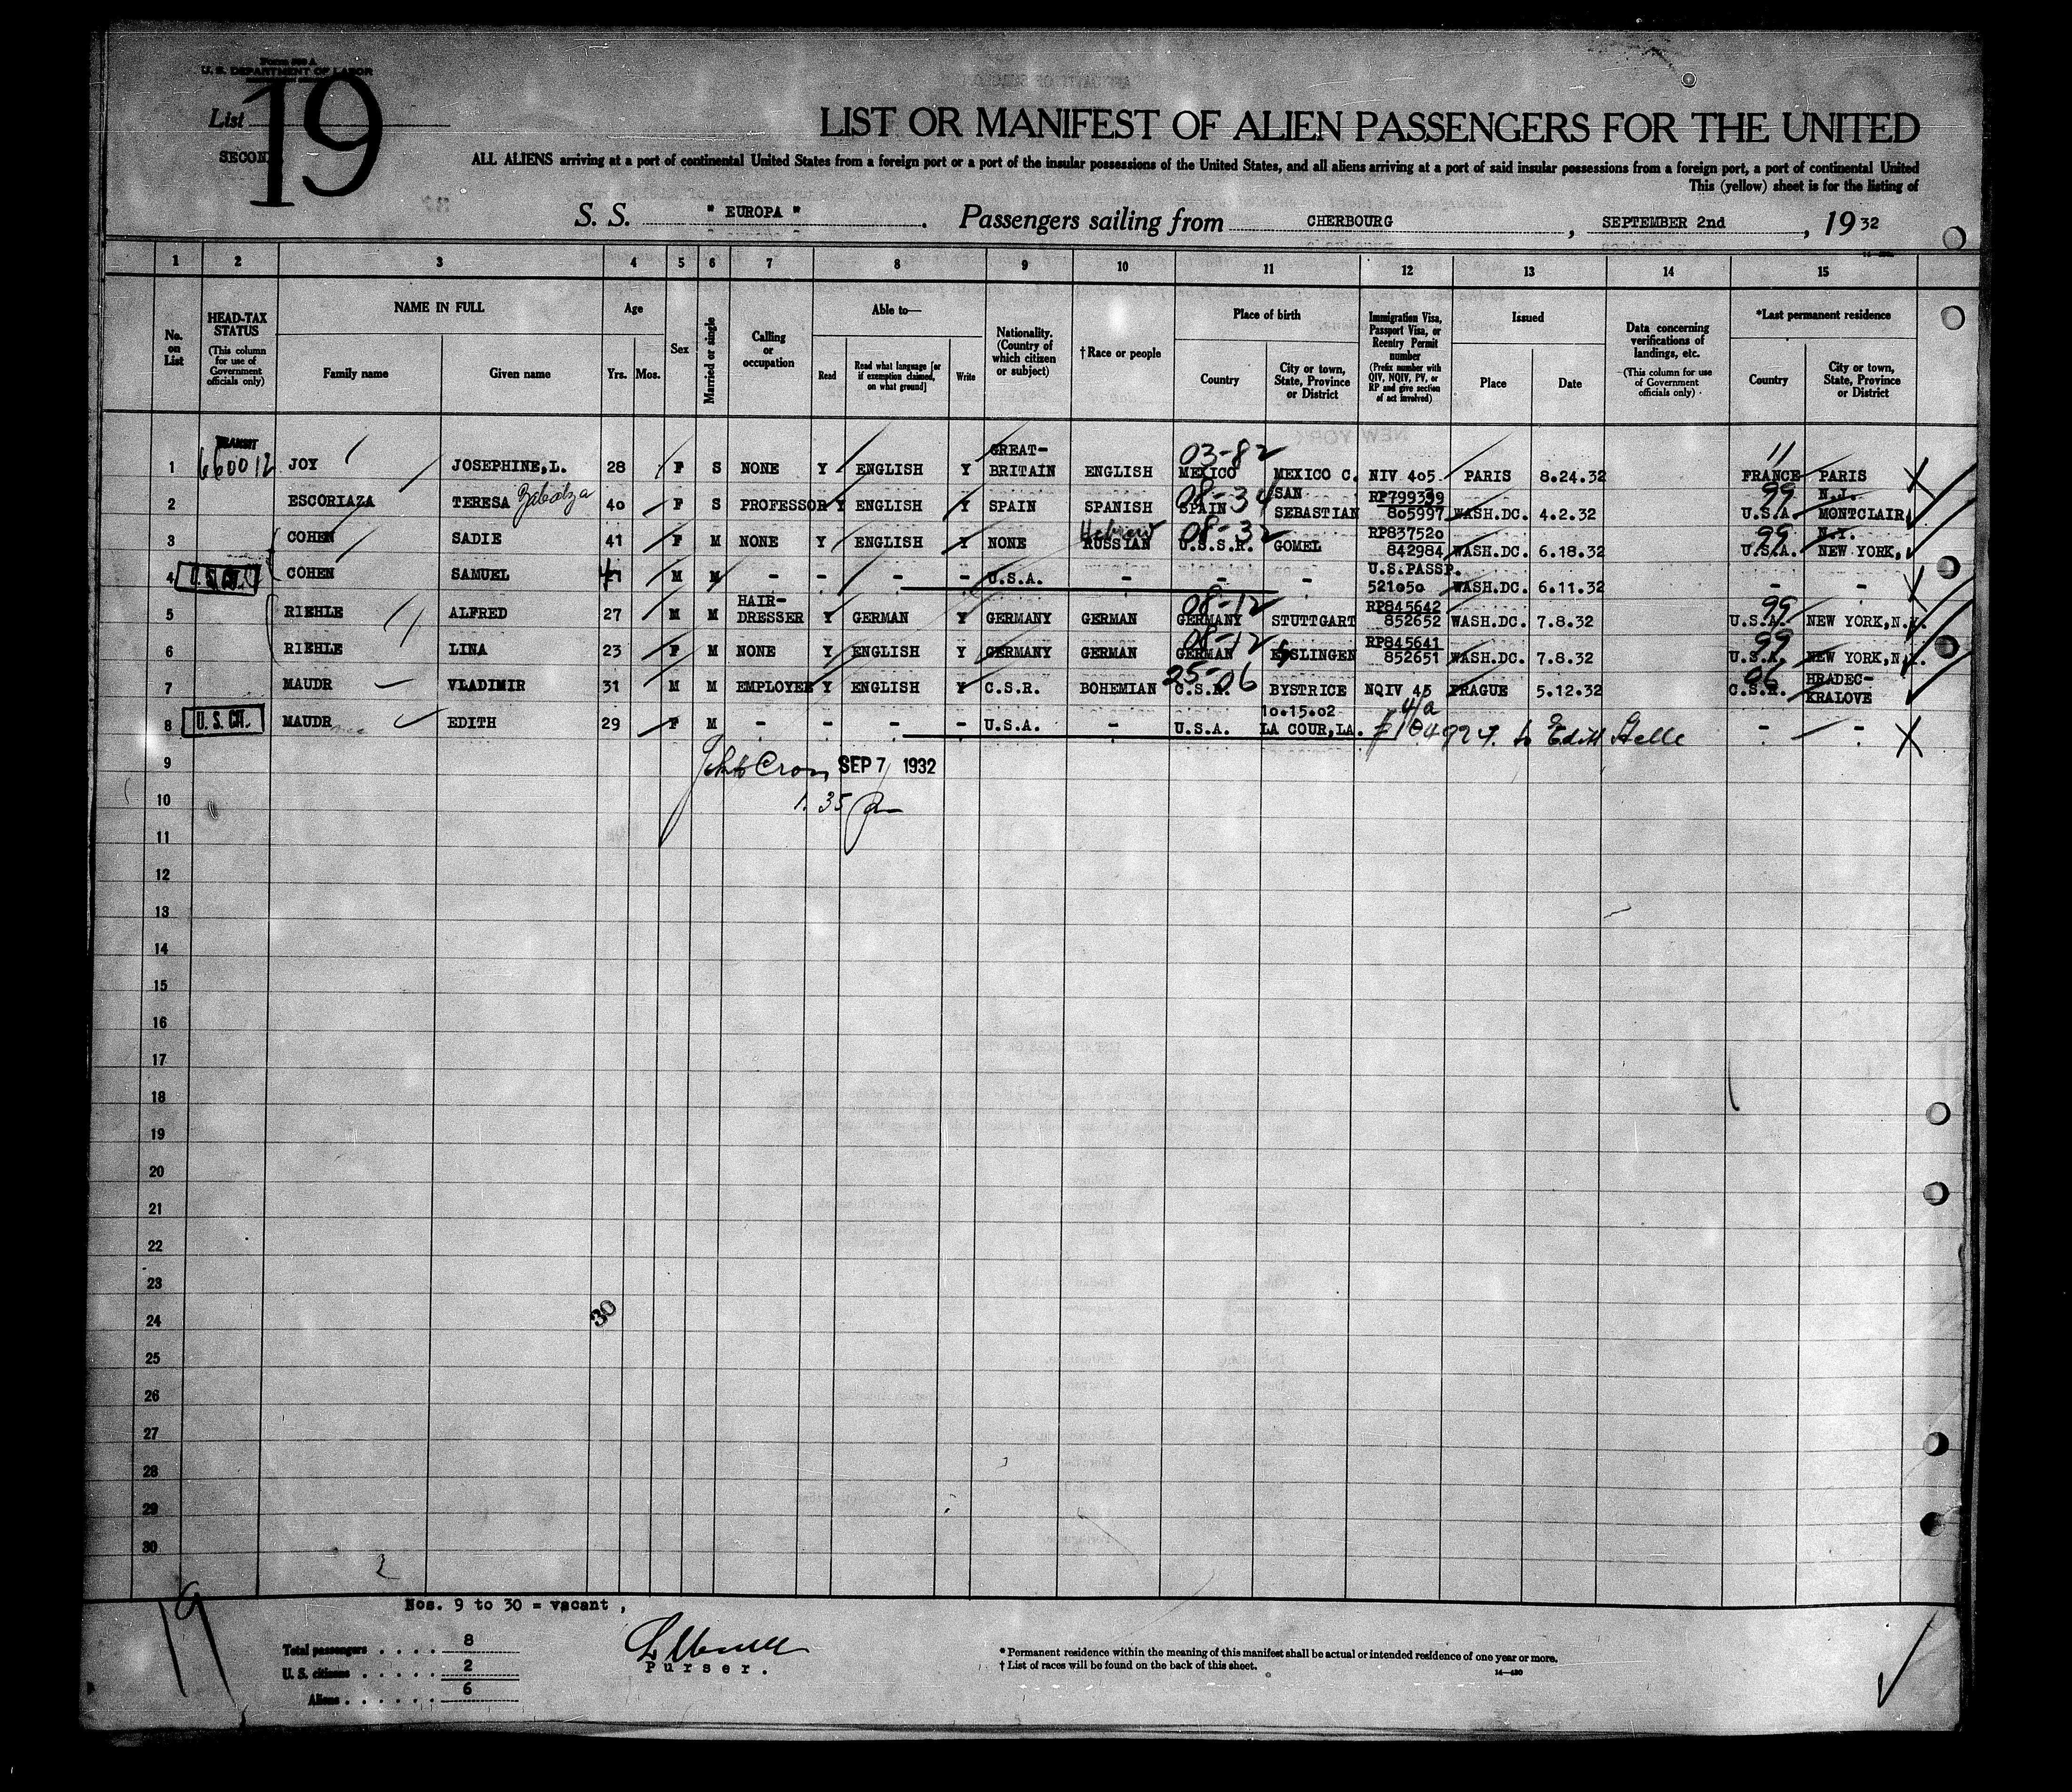 Form 500 A
U. S. DEPARTMENT OF LABOR
List 19
SECOND
LIST OR MANIFEST OF ALIEN PASSENGERS FOR THE UNITED
ALL ALIENS arriving at a port of continental United States from a foreign port or a port of the insular possessions of the United States, and all aliens arriving at a port of said insular possessions from a foreign port, a port of continental United
This (yellow) sheet is for the listing of
S. S. " EUROPA " . Passengers sailing from CHERBOURG , SEPTEMBER 2nd , 19 32
1 2 3 4 5 6 7 8 9 10 11 12 13 14 15
No. on List
HEAD-TAX STATUS (This column for use of Government officials only)
NAME IN FULL
Family name
Given name
Age
Yrs. Mos.
Sex
Married or single
Calling or occupation
Able to—
Read
Read what language [or if exemption claimed, on what ground]
Write
Nationality. (Country of which citizen or subject)
†Race or people
Place of birth
Country
City or town, State, Province or District
Immigration Visa, Passport Visa, or Reentry Permit number (Prefix number with QIV, NQIV, PV, or RP and give section of act involved)
Issued
Place
Date
Data concerning verifications of landings, etc. (This column for use of Government officials only)
*Last permanent residence
Country
City or town, State, Province or District
1 TRANSIT 660012 JOY JOSEPHINE,L. 28 F S NONE Y ENGLISH Y GREAT-BRITAIN ENGLISH 03-82 MEXICO MEXICO C. NIV 405 PARIS 8.24.32 11 FRANCE PARIS
2 ESCORIAZA TERESA 40 F S PROFESSOR Y ENGLISH Y SPAIN SPANISH 08-34 SPAIN SAN SEBASTIAN RP799339 805997 WASH.DC. 4.2.32 99 U.S.A. N.J. MONTCLAIR
3 COHEN SADIE 41 F M NONE Y ENGLISH Y NONE Hebrew RUSSIAN 08-32 U.S.S.R. GOMEL RP837520 842984 WASH.DC. 6.18.32 99 U.S.A. N.Y. NEW YORK,
4 U. S. CIT. COHEN SAMUEL M M - - - - U.S.A. - - - U.S.PASSP. 521050 WASH.DC. 6.11.32 - -
5 RIEHLE ALFRED 27 M M HAIR-DRESSER Y GERMAN Y GERMANY GERMAN 08-12 GERMANY STUTTGART RP845642 852652 WASH.DC. 7.8.32 99 U.S.A. NEW YORK,N.Y.
6 RIEHLE LINA 23 F M NONE Y ENGLISH Y GERMANY GERMAN 08-12 GERMAN ESSLINGEN RP845641 852651 WASH.DC. 7.8.32 99 U.S.A. NEW YORK,N.Y.
7 MAUDR VLADIMIR 31 M M EMPLOYEE Y ENGLISH Y C.S.R. BOHEMIAN 25-06 C.S.R. BYSTRICE NQIV 45 4/a PRAGUE 5.12.32 06 C.S.R. HRADEC-KRALOVE
8 U. S. CIT. MAUDR EDITH 29 F M - - - - U.S.A. - U.S.A. 10.15.02 LA COUR,LA. to Edith - -
9 SEP 7 1932
10 1.35
11
12
13
14
15
16
17
18
19
20
21
22
23
24 30
25
26
27
28
29
30
19
Nos. 9 to 30 = vacant ,
Total passengers . . . . 8
U. S. citizens . . . . . 2
Aliens . . . . . . 6
Purser.
* Permanent residence within the meaning of this manifest shall be actual or intended residence of one year or more.
† List of races will be found on the back of this sheet.
14—430